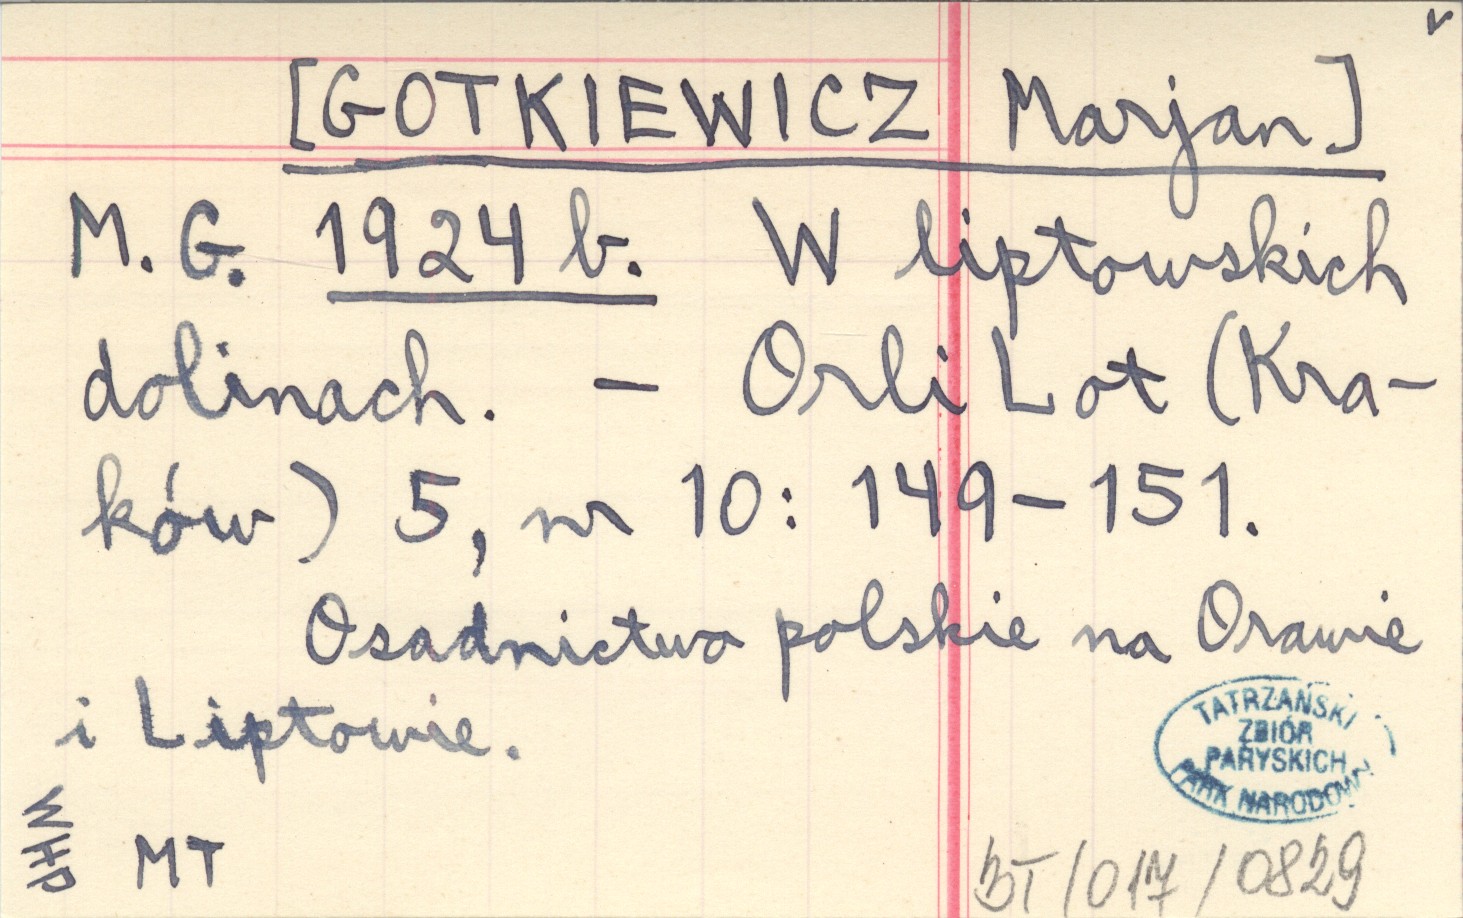 [GOTKIEWICZ Marjan]
M. G. 1924 b. W liptowskich
dolinach. – Orli Lot (Kra-
ków) 5, nr 10: 149–151.
Osadnictwo polskie na Orawie
i Liptowie.
TATRZAŃSKI
ZBIÓR
PARYSKICH
PARK NARODOWY
WHP
MT
BT/017/0829